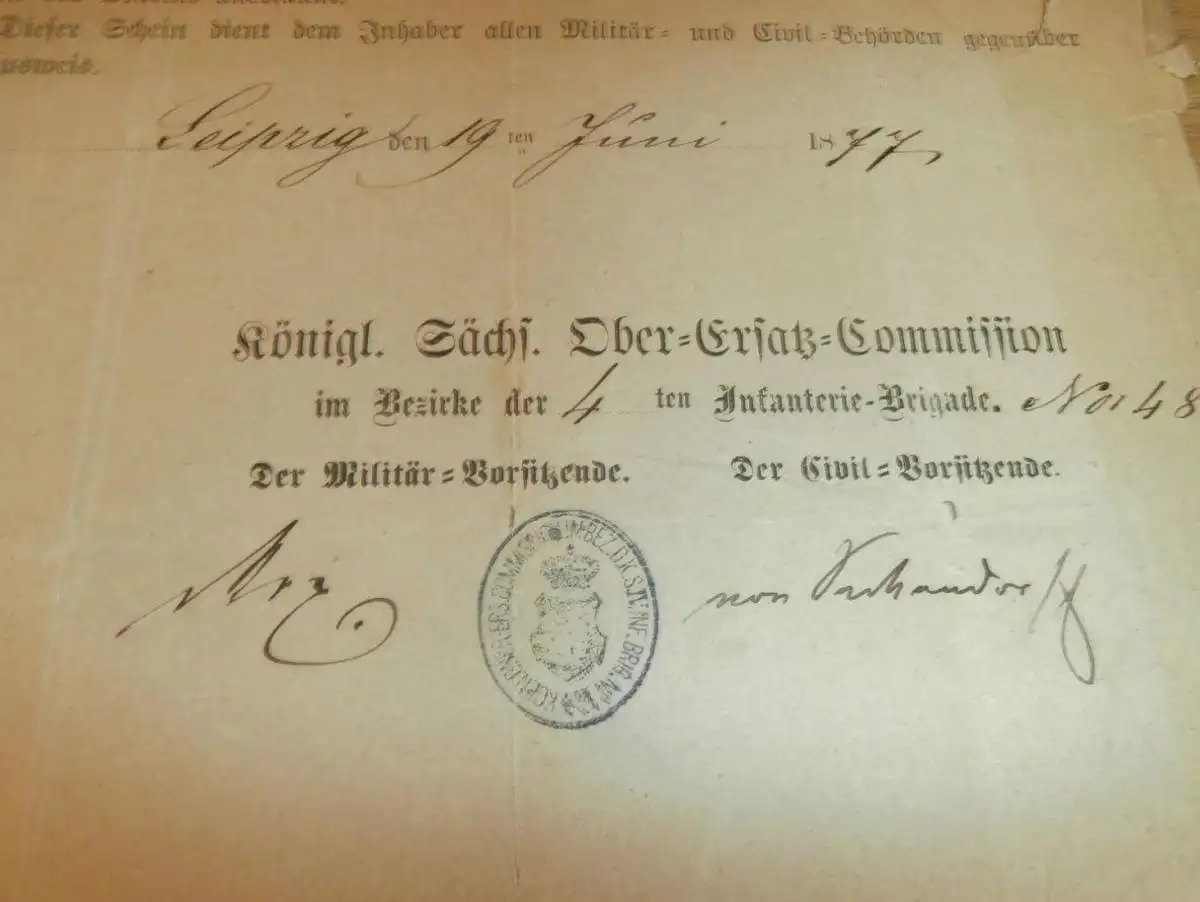 Dieser Schein dient dem Inhaber allen Militär- und Civil-Behörden gegenüber
usweis.
Leipzig den 19 ten Juni 1877
Königl. Sächs. Ober-Ersatz-Commission
im Bezirke der 4 ten Infanterie-Brigade. No 48
Der Militär-Vorsitzende. Der Civil-Vorsitzende.
von